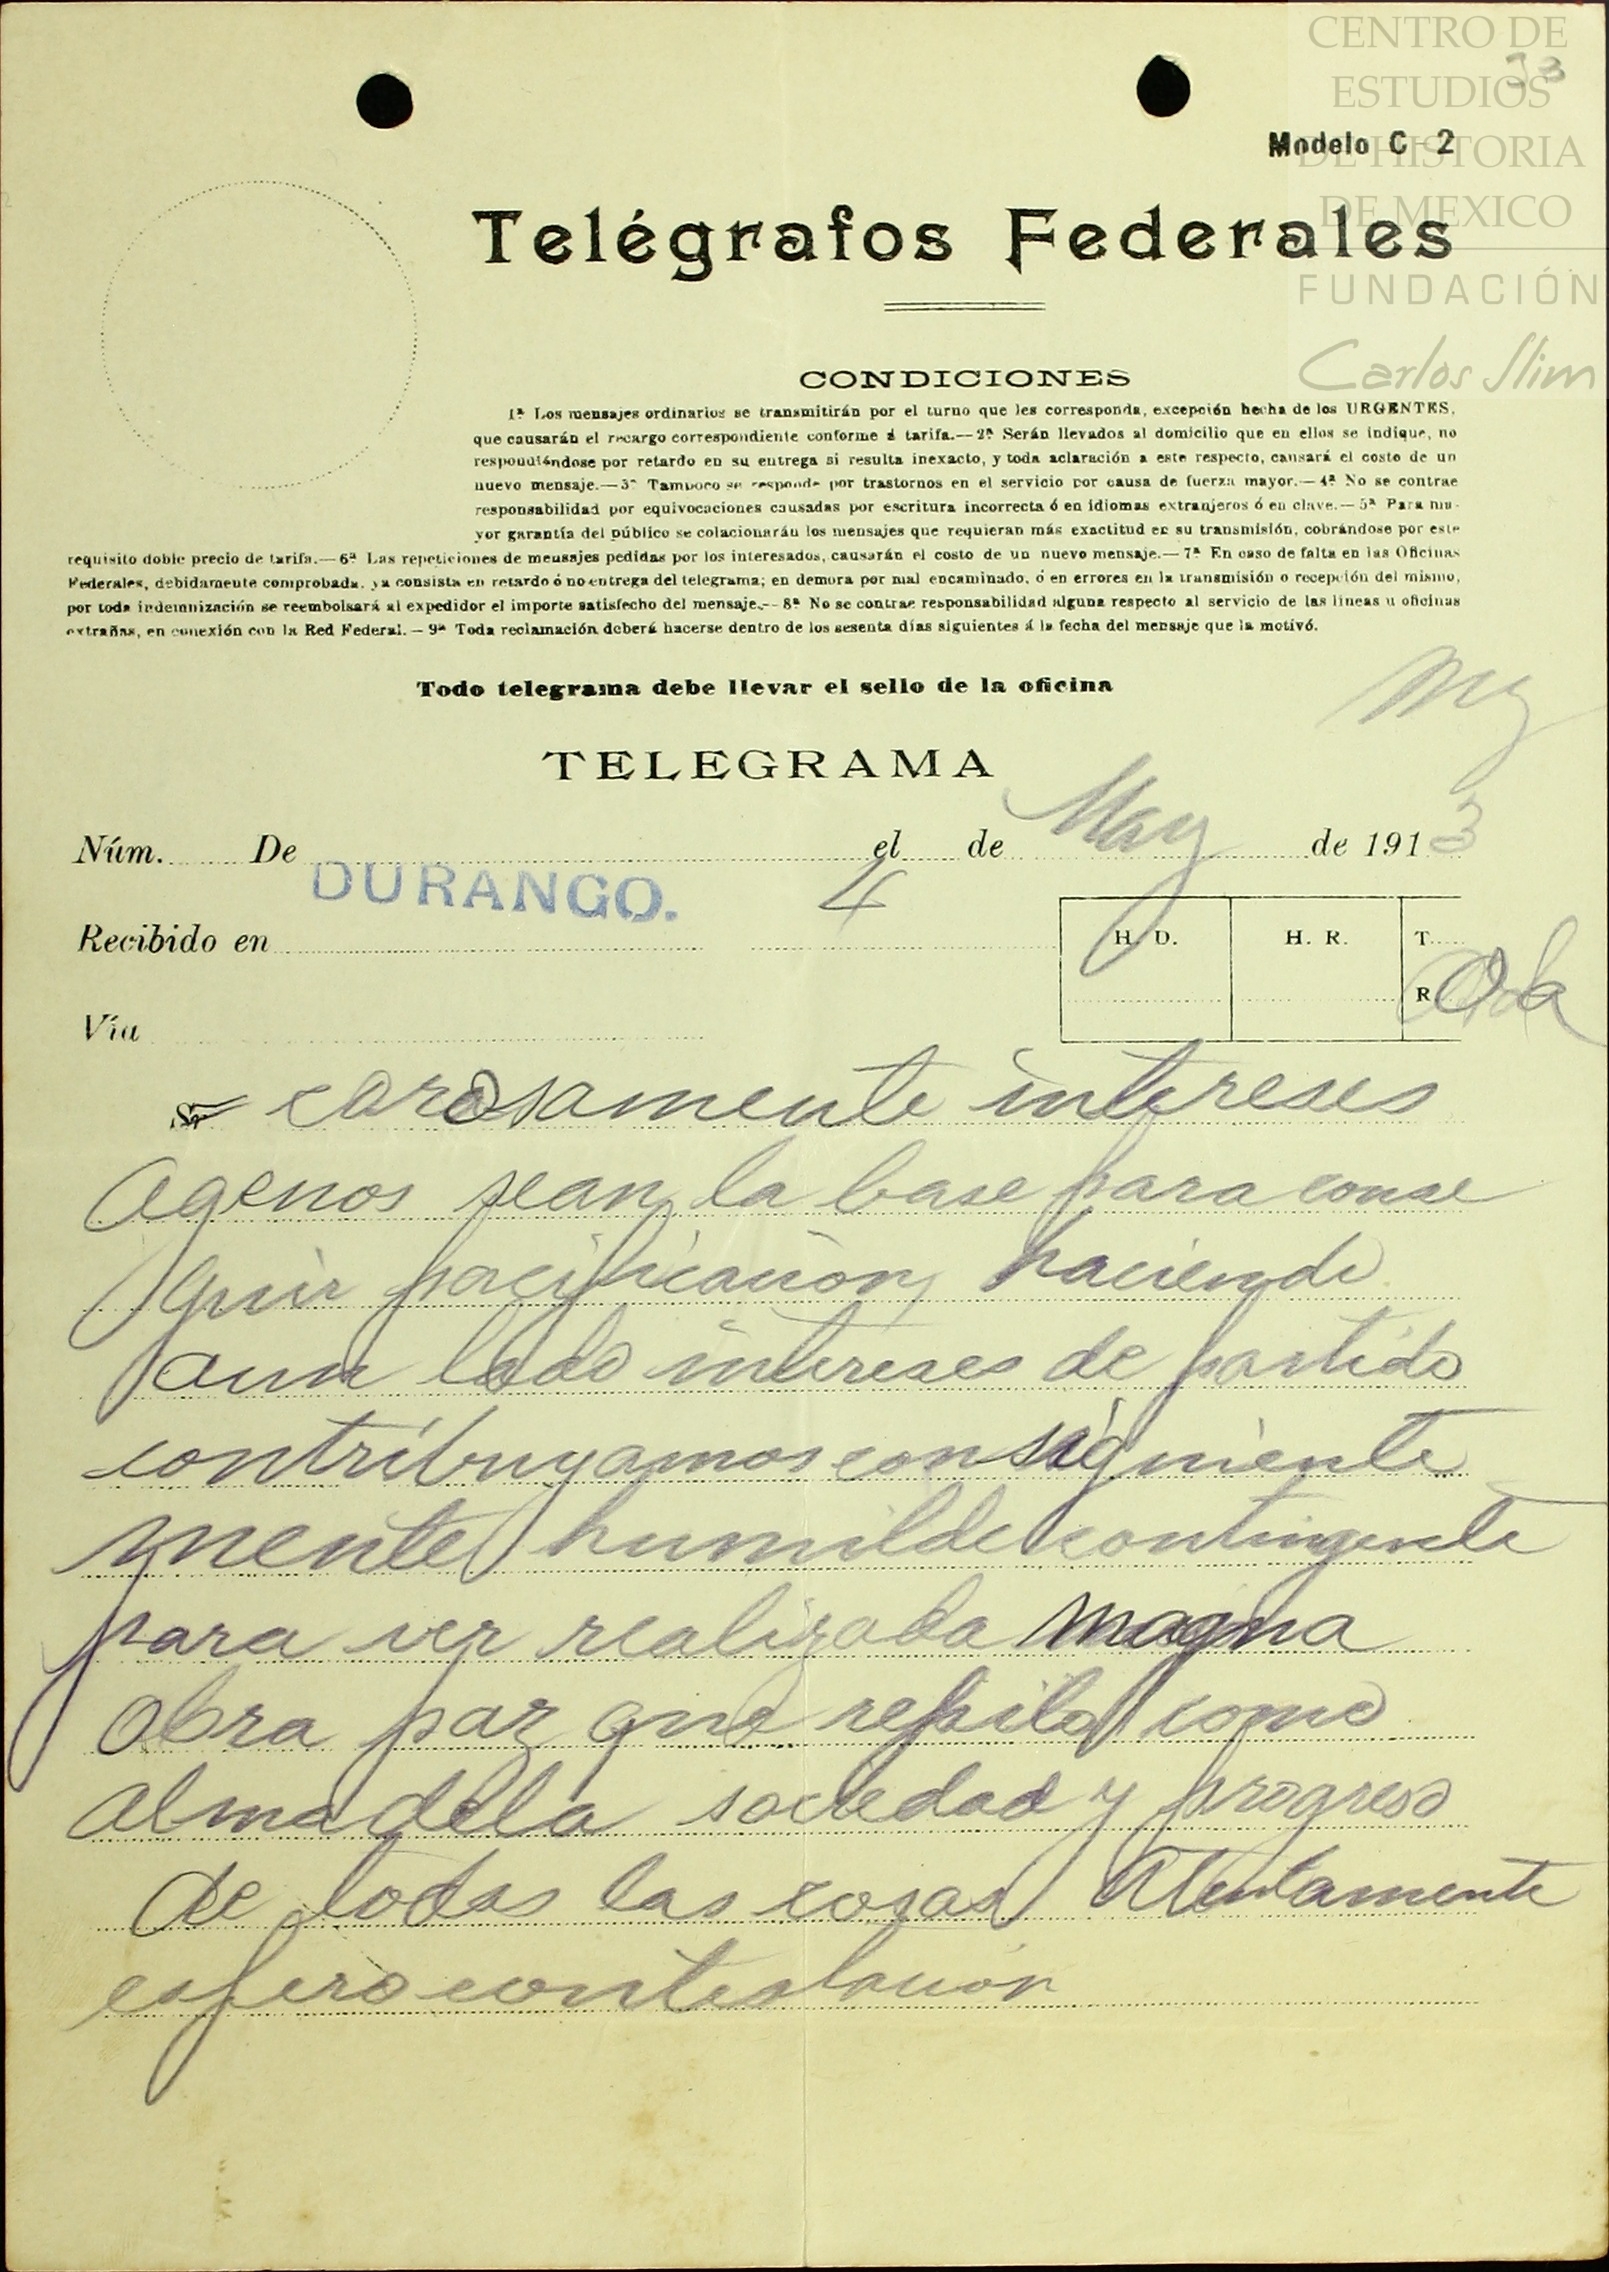 CENTRO DE
ESTUDIOS
DE HISTORIA
DE MEXICO
FUNDACIÓN
Carlos Slim
33
Modelo C 2
Telégrafos Federales
CONDICIONES
1ª Los mensajes ordinarios se transmitirán por el turno que les corresponda, excepción hecha de los URGENTES,
que causarán el recargo correspondiente conforme á tarifa.—2ª Serán llevados al domicilio que en ellos se indique, no
respondiéndose por retardo en su entrega si resulta inexacto, y toda aclaración a este respecto, causará el costo de un
nuevo mensaje.—3ª Tampoco se responde por trastornos en el servicio por causa de fuerza mayor.—4ª No se contrae
responsabilidad por equivocaciones causadas por escritura incorrecta ó en idiomas extranjeros ó en clave.—5ª Para ma-
yor garantía del público se colacionarán los mensajes que requieran más exactitud en su transmisión, cobrándose por este
requisito doble precio de tarifa.—6ª Las repeticiones de mensajes pedidas por los interesados, causarán el costo de un nuevo mensaje.—7ª En caso de falta en las Oficinas
Federales, debidamente comprobada, ya consista en retardo ó no entrega del telegrama; en demora por mal encaminado, ó en errores en la transmisión o recepción del mismo,
por toda indemnización se reembolsará al expedidor el importe satisfecho del mensaje.—8ª No se contrae responsabilidad alguna respecto al servicio de las líneas u oficinas
extrañas, en conexión con la Red Federal.—9ª Toda reclamación deberá hacerse dentro de los sesenta días siguientes á la fecha del mensaje que la motivó.
Todo telegrama debe llevar el sello de la oficina
TELEGRAMA
Núm. De el de May de 1913
DURANGO. 4
Recibido en
H. D. H. R. T.
R
Vía
carosamente intereses
agenos sean la base para conse
guir pacificacion, haciendo
aun lado intereses de partido
contribuyamos consiguiente
mente humilde contingente
para ver realizada magna
obra paz que repito como
alma dela sociedad y progreso
de todas las cosas Atentamente
espero contestacion